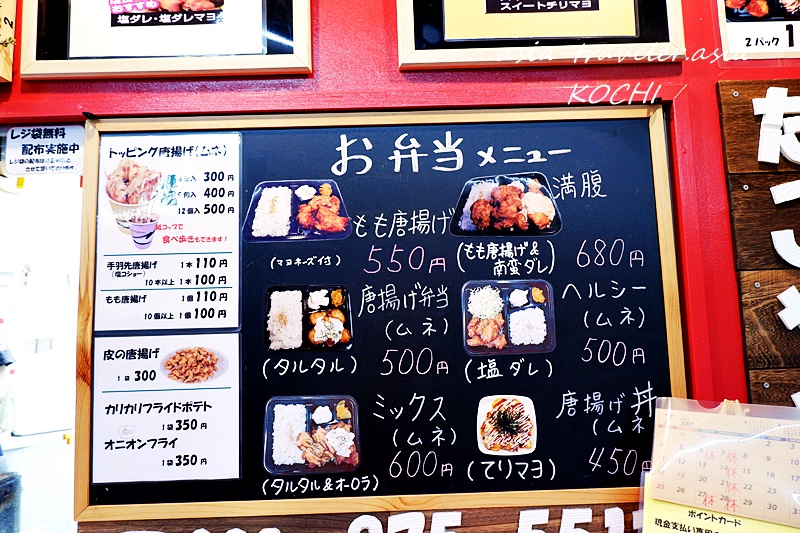 塩ダレ・塩ダレマヨ
スイートチリマヨ
2パック 1
asia-traveler.asia
KOCHI
レジ袋無料
配布実施中
トッピング唐揚げ(ムネ)
300円
400円
12個入 500円
紙コップで
食べ歩きもできます!
手羽先唐揚げ 1本 110円
(塩コショー)
10本以上 1本 100円
もも唐揚げ 1個 110円
10個以上 1個 100円
皮の唐揚げ
1袋 300
カリカリフライドポテト
1袋 350円
オニオンフライ
1袋 350円
お弁当メニュー
もも唐揚げ
(マヨネーズ付)
550円
満腹
(もも唐揚げ&
南蛮ダレ)
680円
唐揚げ弁当
(ムネ)
(タルタル)
500円
ヘルシー
(ムネ)
(塩ダレ)
500円
ミックス
(ムネ)
(タルタル&オーロラ)
600円
唐揚げ丼
(ムネ
(てりマヨ)
450円
ポイントカード